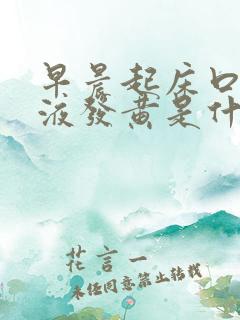 早晨起床口
液發黄是什
花言一
未经同意禁止转载